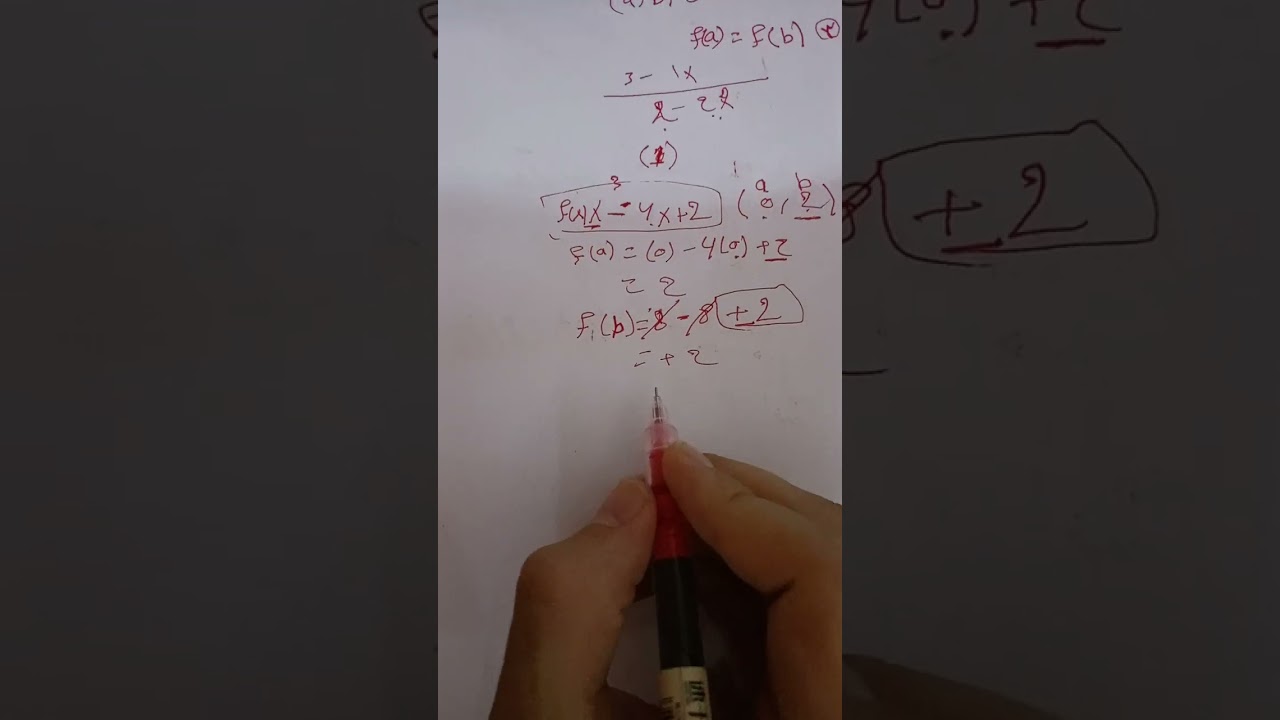 f(a) = f(b) *
3 - 1x
2 - 2x
(1)
f(x) x³ - 4x+2 (0, 2)
a b
f(a) = (0) - 4(0) + 2
= 2
f(b) = 8 - 8 + 2
= + 2